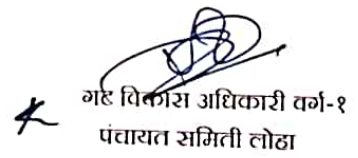 गट विकास अधिकारी वर्ग-१
पंचायत समिती लोहा